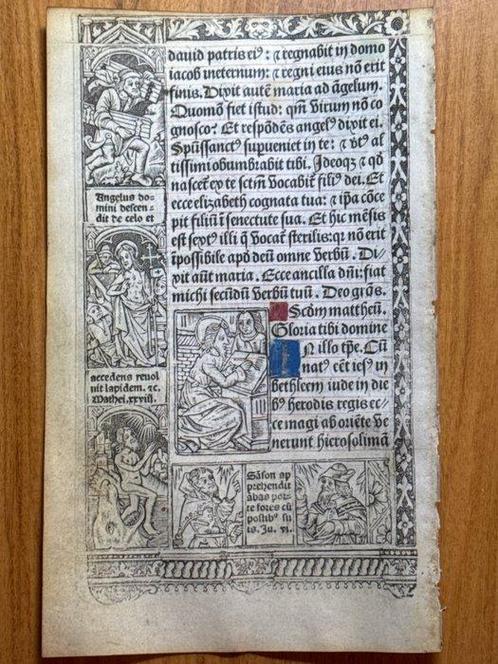 dauid patris ei⁹: ⁊ regnabit in domo
iacob ineternum: ⁊ regni eius nõ erit
finis. Dixit autẽ maria ad ãgelum.
Quomõ fiet istud: qm̃ virum nõ co-
gnosco? Et respõdẽs angel⁹ dixit ei.
Spũssanct⁹ supueniet in te: ⁊ ỹt⁹ al
tissimi obumbrabit tibi. Ideoqꝫ ⁊ qđ
nascet̃ ex te sctm̃ vocabit̃ fili⁹ dei. Et
ecce elizabeth cognata tua: ⁊ ip̃a cõce
pit filiũ ĩ senectute sua. Et hic mẽsis
est sext⁹ illi q̃ vocat̃ sterilis: qr̃ nõ erit
ĩpossibile apđ deũ omne verbũ. Di-
xit aũt maria. Ecce ancilla dñi: fiat
michi secũdũ verbũ tuũ. Deo grãs.
Scđm mattheũ.
Gloria tibi domine
IN illo tp̃e. Cũ
nat⁹ eẽt iesꝰ in
bethleem iude in die
b⁹ herodis regis ec-
ce magi ab oriẽte ve
nerunt hierosolimã
Angelus do-
mini descen-
dit de celo et
accedens reuol
uit lapidem. ⁊c.
Mathei. xxviii.
Sãson ap
prehendit
abas por-
te fores cũ
postib⁹ su
is. Ju. xi.